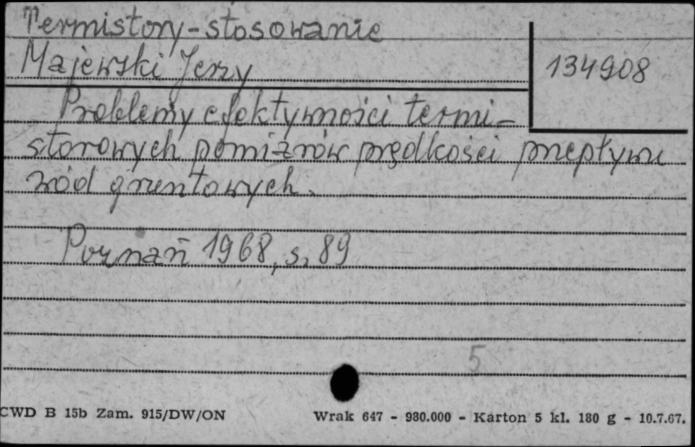 Termistory-stosowanie
Majewski Jerzy
134908
Problemy efektywności termi-
storowych pomiarów prędkości przepływu
wód gruntowych.
Poznań 1968, s. 89
5
CWD B 15b Zam. 915/DW/ON
Wrak 647 - 980.000 - Karton 5 kl. 180 g - 10.7.67.